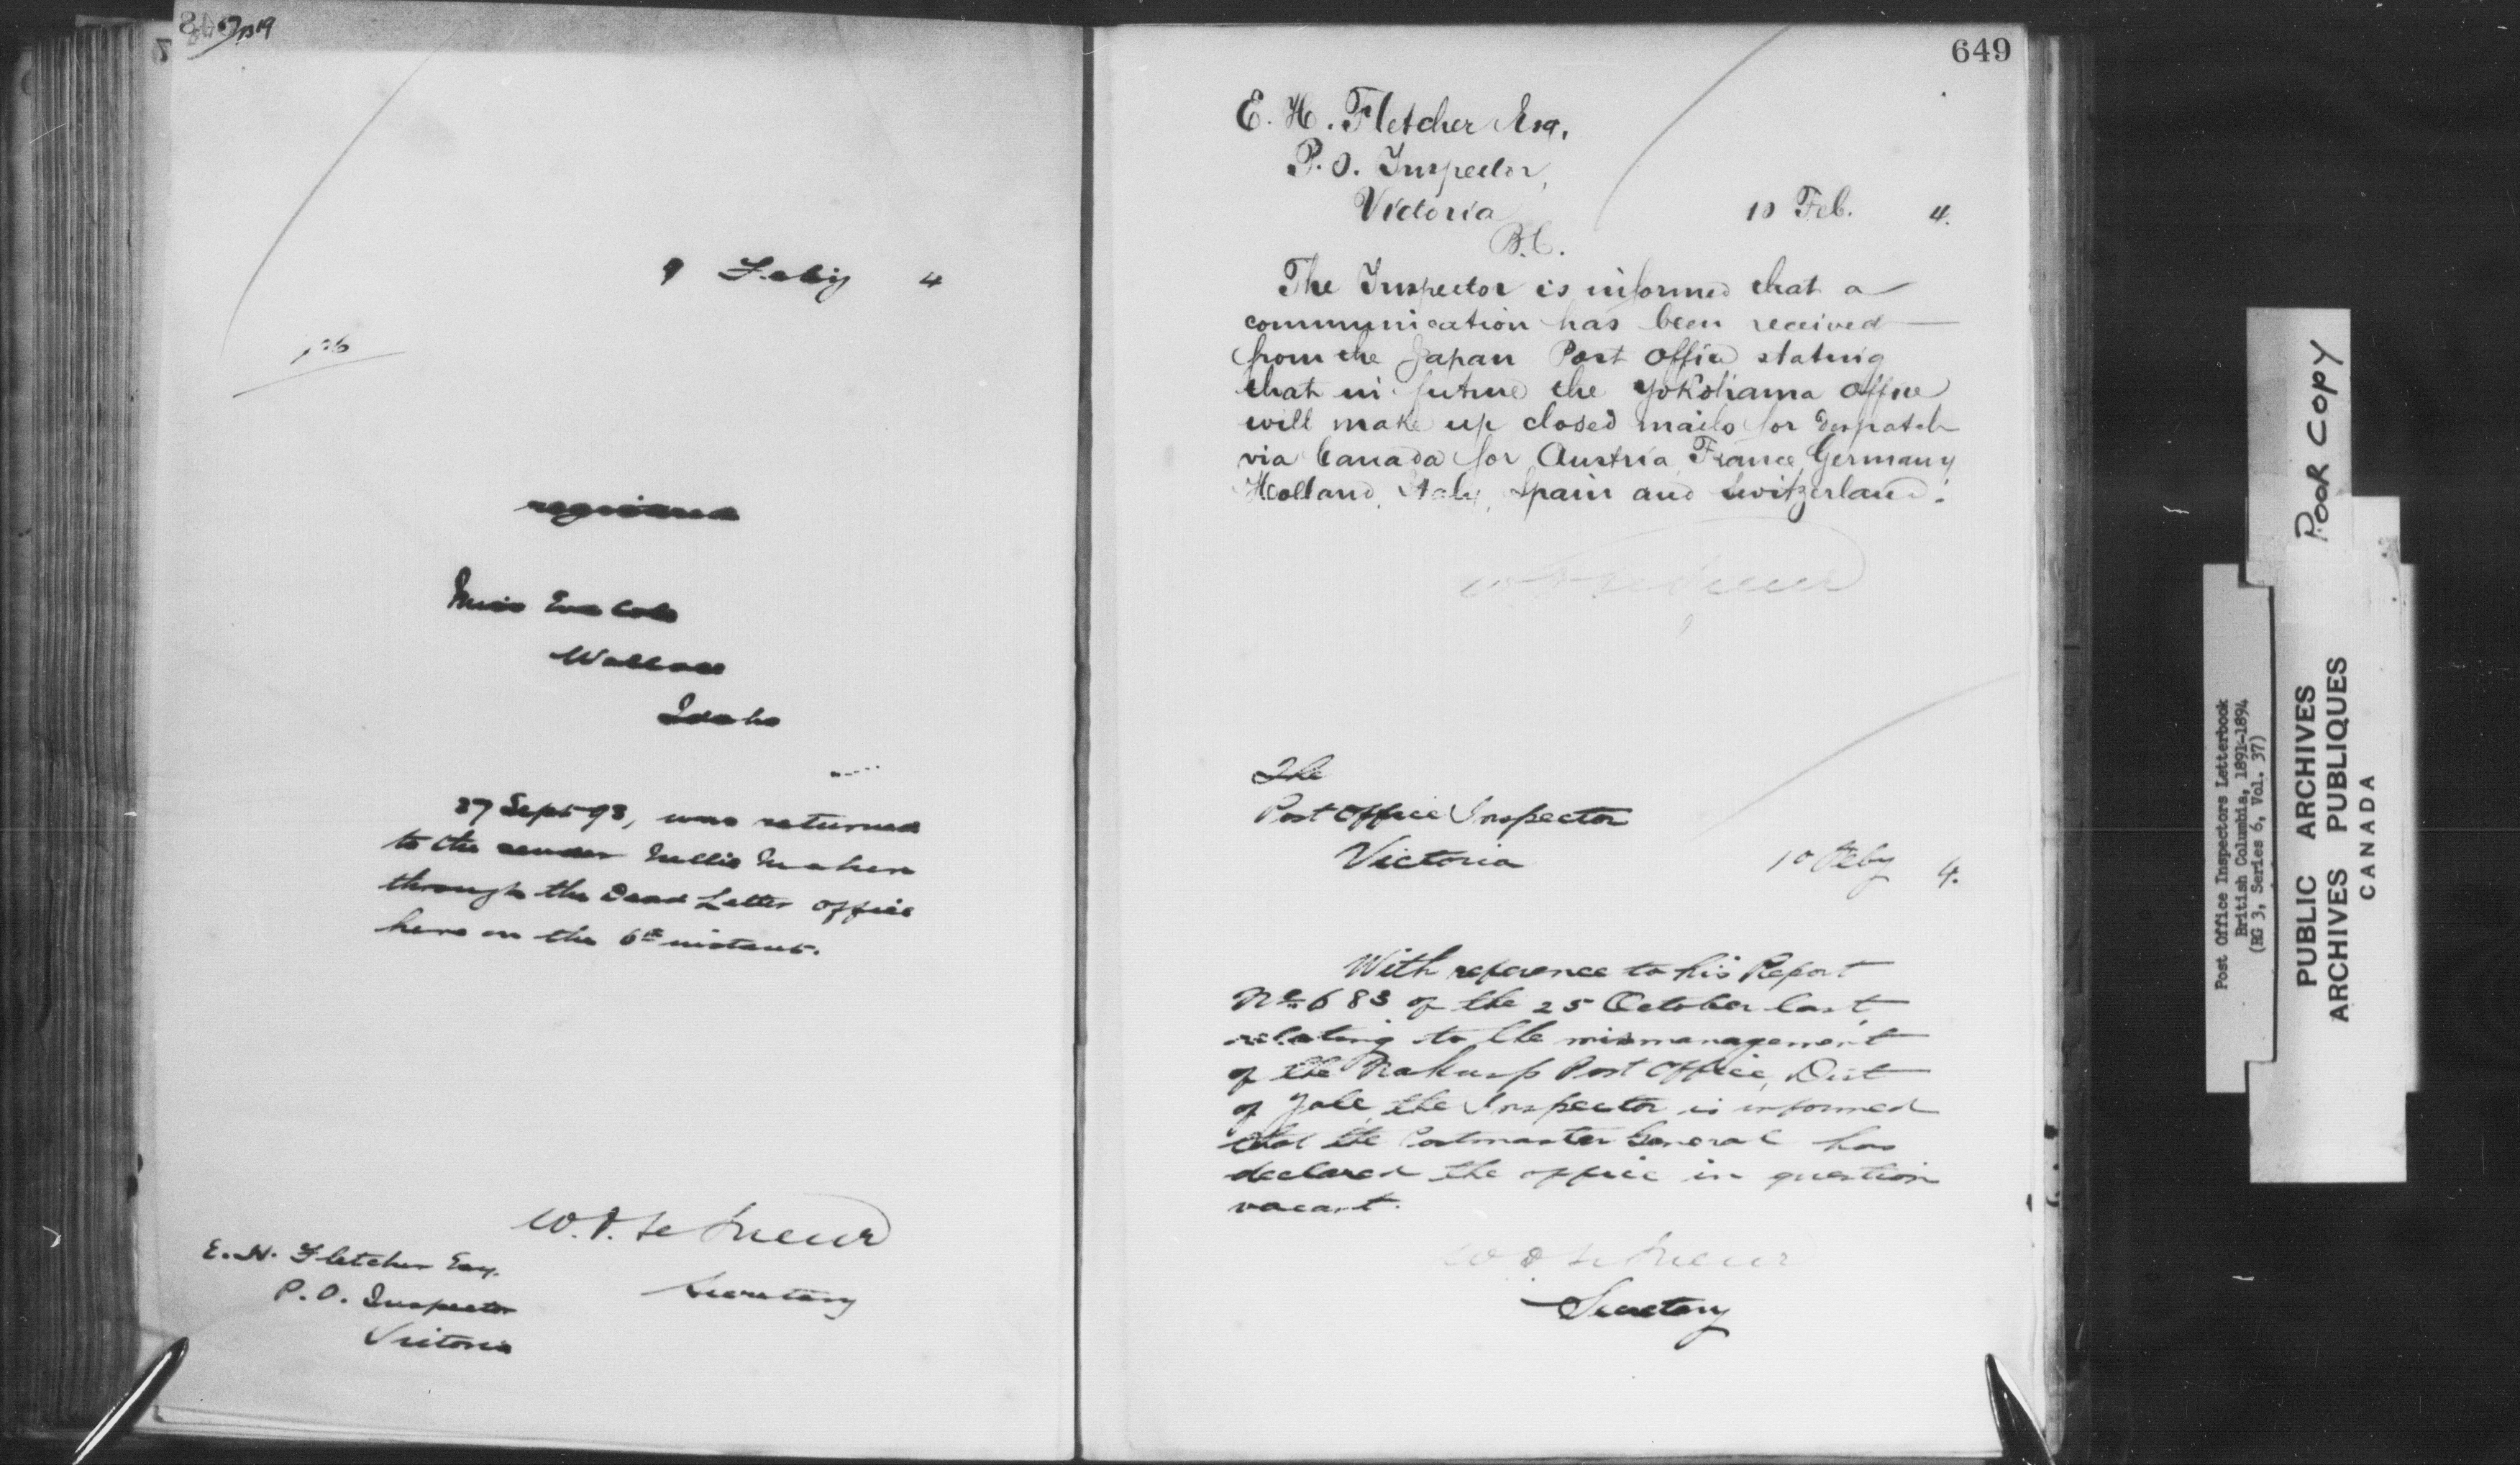 9 Feby 4
registered
Miss Eva Cole
Wallace
Idaho
27 Sept 93, was returned
to the sender Nellie Maher
through the Dead Letter office
here on the 6th instant.
W.D. Le Sueur
Secretary
E. H. Fletcher Esq.
P. O. Inspector
Victoria
649
E. H. Fletcher Esq.
P. O. Inspector,
Victoria
B.C.
10 Feb. 4.
The Inspector is informed that a
communication has been received
from the Japan Post Office stating
that in future the Yokohama Office
will make up closed mails for despatch
via Canada for Austria, France, Germany
Holland, Italy, Spain and Switzerland.
W D Le Sueur
The
Post Office Inspector
Victoria
10 Feby 4.
With reference to his Report
No 683 of the 25 October last,
relating to the mismanagement
of the Nakusp Post Office, Dist
of Yale, the Inspector is informed
that the Postmaster General has
declared the office in question
vacant.
W D Le Sueur
Secretary
POOR COPY
Post Office Inspectors Letterbook
British Columbia, 1891-1894
(RG 3, Series 6, Vol. 37)
PUBLIC ARCHIVES
ARCHIVES PUBLIQUES
CANADA